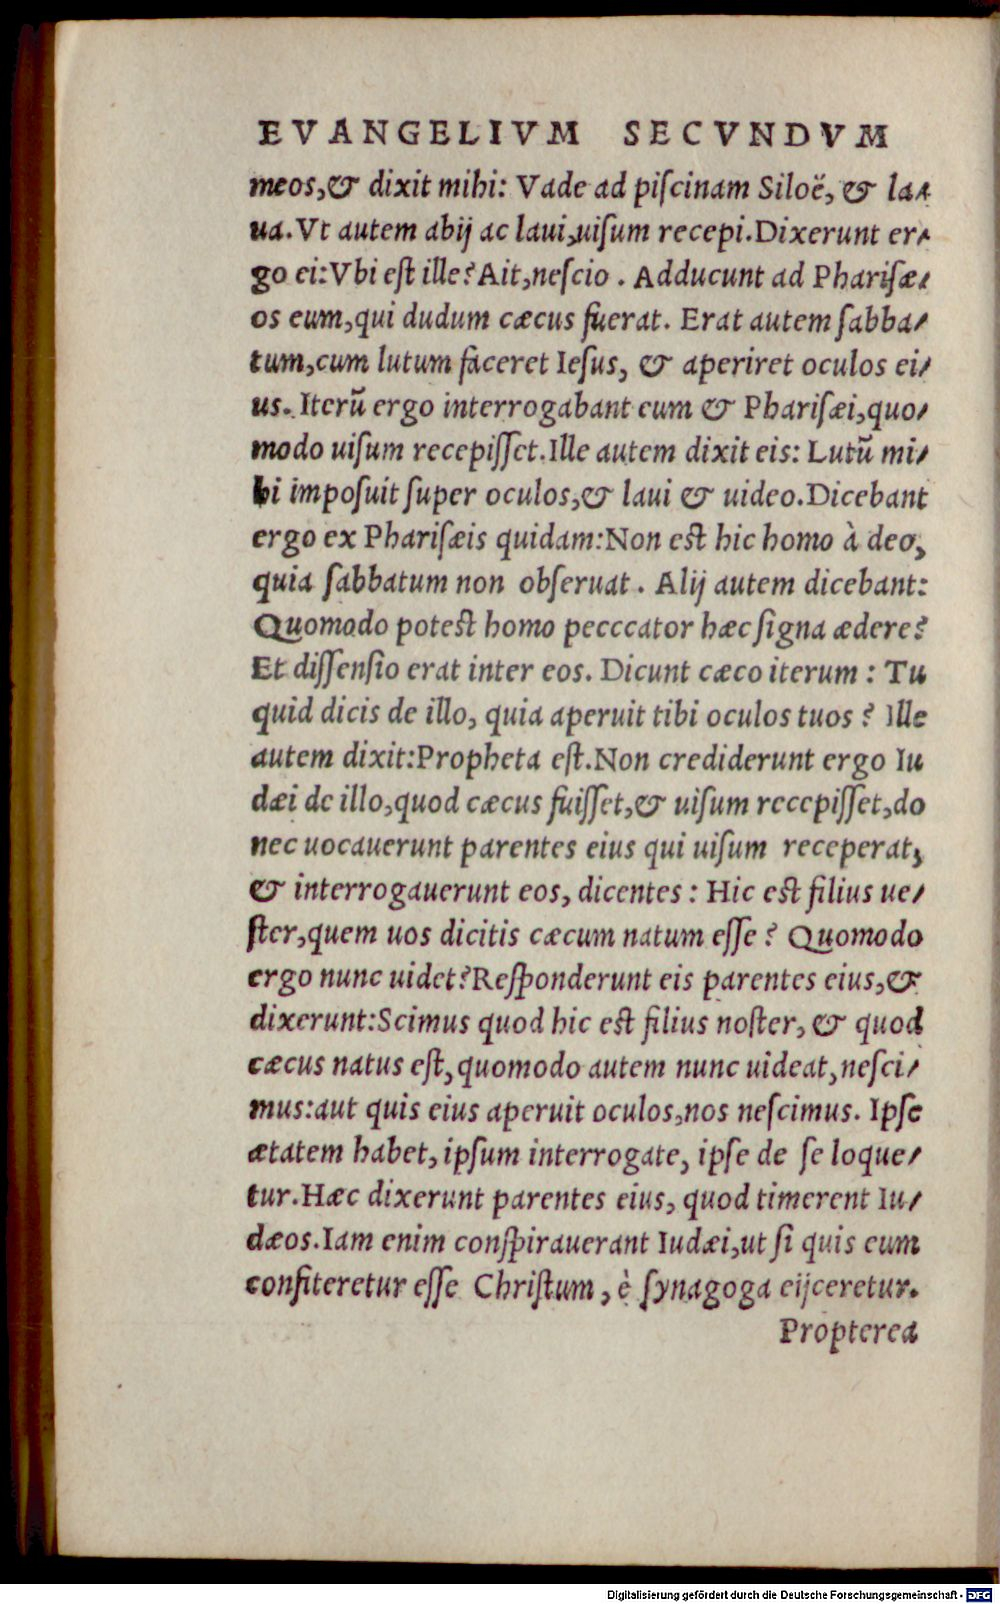 EVANGELIVM SECVNDVM
meos,& dixit mihi: Vade ad piſcinam Siloë, & la-
ua. Vt autem abij ac laui,uiſum recepi. Dixerunt er-
go ei: Vbi eſt ille? Ait,neſcio . Adducunt ad Phariſæ-
os eum,qui dudum cæcus fuerat. Erat autem ſabba-
tum,cum lutum faceret Ieſus, & aperiret oculos ei-
us. Iterũ ergo interrogabant eum & Phariſæi,quo-
modo uiſum recepiſſet. Ille autem dixit eis: Lutũ mi-
hi impoſuit ſuper oculos,& laui & uideo. Dicebant
ergo ex Phariſæis quidam: Non eſt hic homo à deo,
quia ſabbatum non obſeruat . Alij autem dicebant:
Quomodo poteſt homo pecccator hæc ſigna ædere?
Et diſſenſio erat inter eos. Dicunt cæco iterum : Tu
quid dicis de illo, quia aperuit tibi oculos tuos ? Ille
autem dixit: Propheta eſt. Non crediderunt ergo Iu
dæi de illo,quod cæcus fuiſſet,& uiſum recepiſſet,do
nec uocauerunt parentes eius qui uiſum receperat,
& interrogauerunt eos, dicentes : Hic eſt filius ue-
ſter,quem uos dicitis cæcum natum eſſe ? Quomodo
ergo nunc uidet? Reſponderunt eis parentes eius,&
dixerunt: Scimus quod hic eſt filius noſter, & quod
cæcus natus eſt, quomodo autem nunc uideat,neſci-
mus: aut quis eius aperuit oculos,nos neſcimus. Ipſe
ætatem habet, ipſum interrogate, ipſe de ſe loque-
tur. Hæc dixerunt parentes eius, quod timerent Iu-
dæos. Iam enim conſpirauerant Iudæi,ut ſi quis eum
confiteretur eſſe Chriſtum , è ſynagoga eijceretur.
Propterea
Digitalisierung gefördert durch die Deutsche Forschungsgemeinschaft - DFG